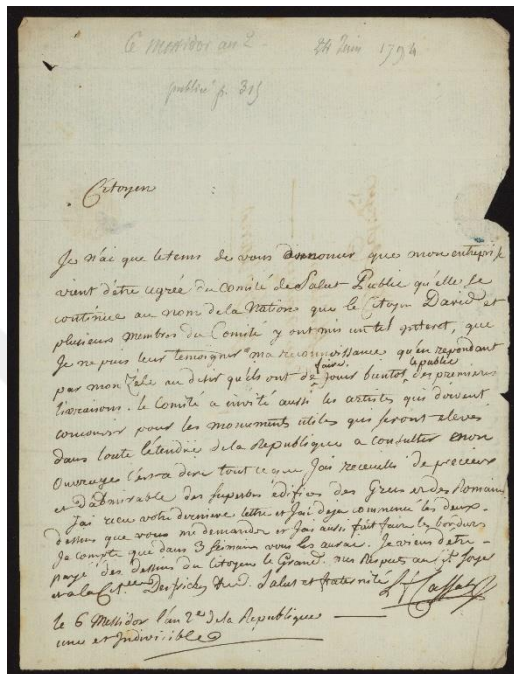 6 Messidor an 2 - 24 Juin 1794
publié p. 315
Citoyen
Je n'ai que le tems de vous annoncer que mon entreprise
vient d'etre agréé du Comité de Salut Public qu'elle se
continue au nom de la Nation que le Citoyen David et
plusieurs membres du Comité y ont mis un tel interet, que
Je ne puis leur temoigner ma reconnoissance qu'en repondant
par mon Zele au desir qu'ils ont de faire Jouir bientot le public des premieres
livraisons. le Comité a invité aussi les artistes qui doivent
concourir pour les monuments utiles qui seront elevés
dans toute l'étendüe de la Republique a consulter mon
Ouvrage c'est a dire tout ce que J'ai recueilli de precieux
et d'admirable des superbes édifices des Grecs et des Romains
J'ai recu votre derniere lettre et J'ai deja commencé les deux
dessins que vous me demandez et J'ai aussi fait faire les bordures
Je compte que dans 3 semaines vous les aurai. Je viens d'etre
payé des dessins du Citoyen le Grand. mes Respects au
et a la Cit.enne Salut et fraternité L F Cassas
le 6 Messidor l'an 2e de la Republique
une et Indivisible